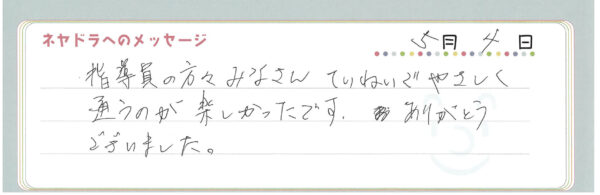 ネヤドラへのメッセージ 5月 4日
指導員の方々みなさん ていねいでやさしく
通うのが 楽しかったです. ありがとう
ございました。